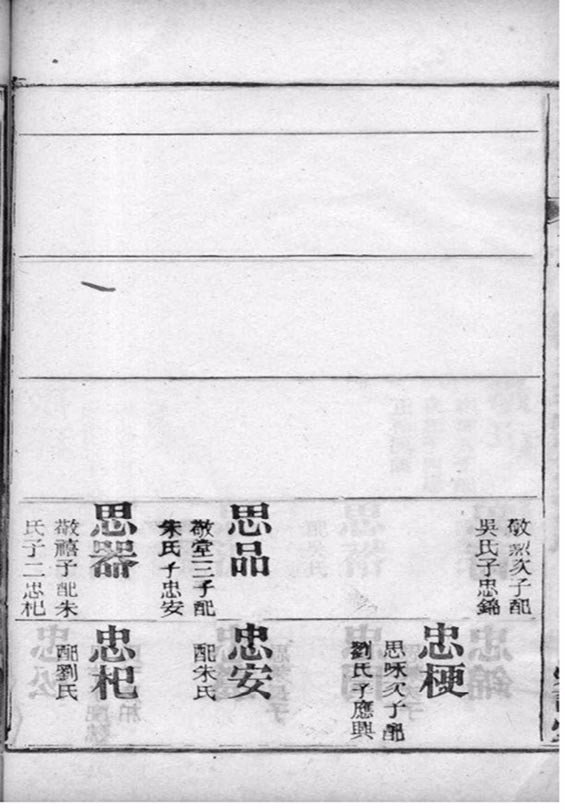 敬烈次子配
吳氏子忠錦
思品
敬堂三子配
朱氏子忠安
思器
敬禧子配朱
氏子二忠杞
忠梗
思咏次子配
劉氏子應興
忠安
配朱氏
忠杞
配劉氏